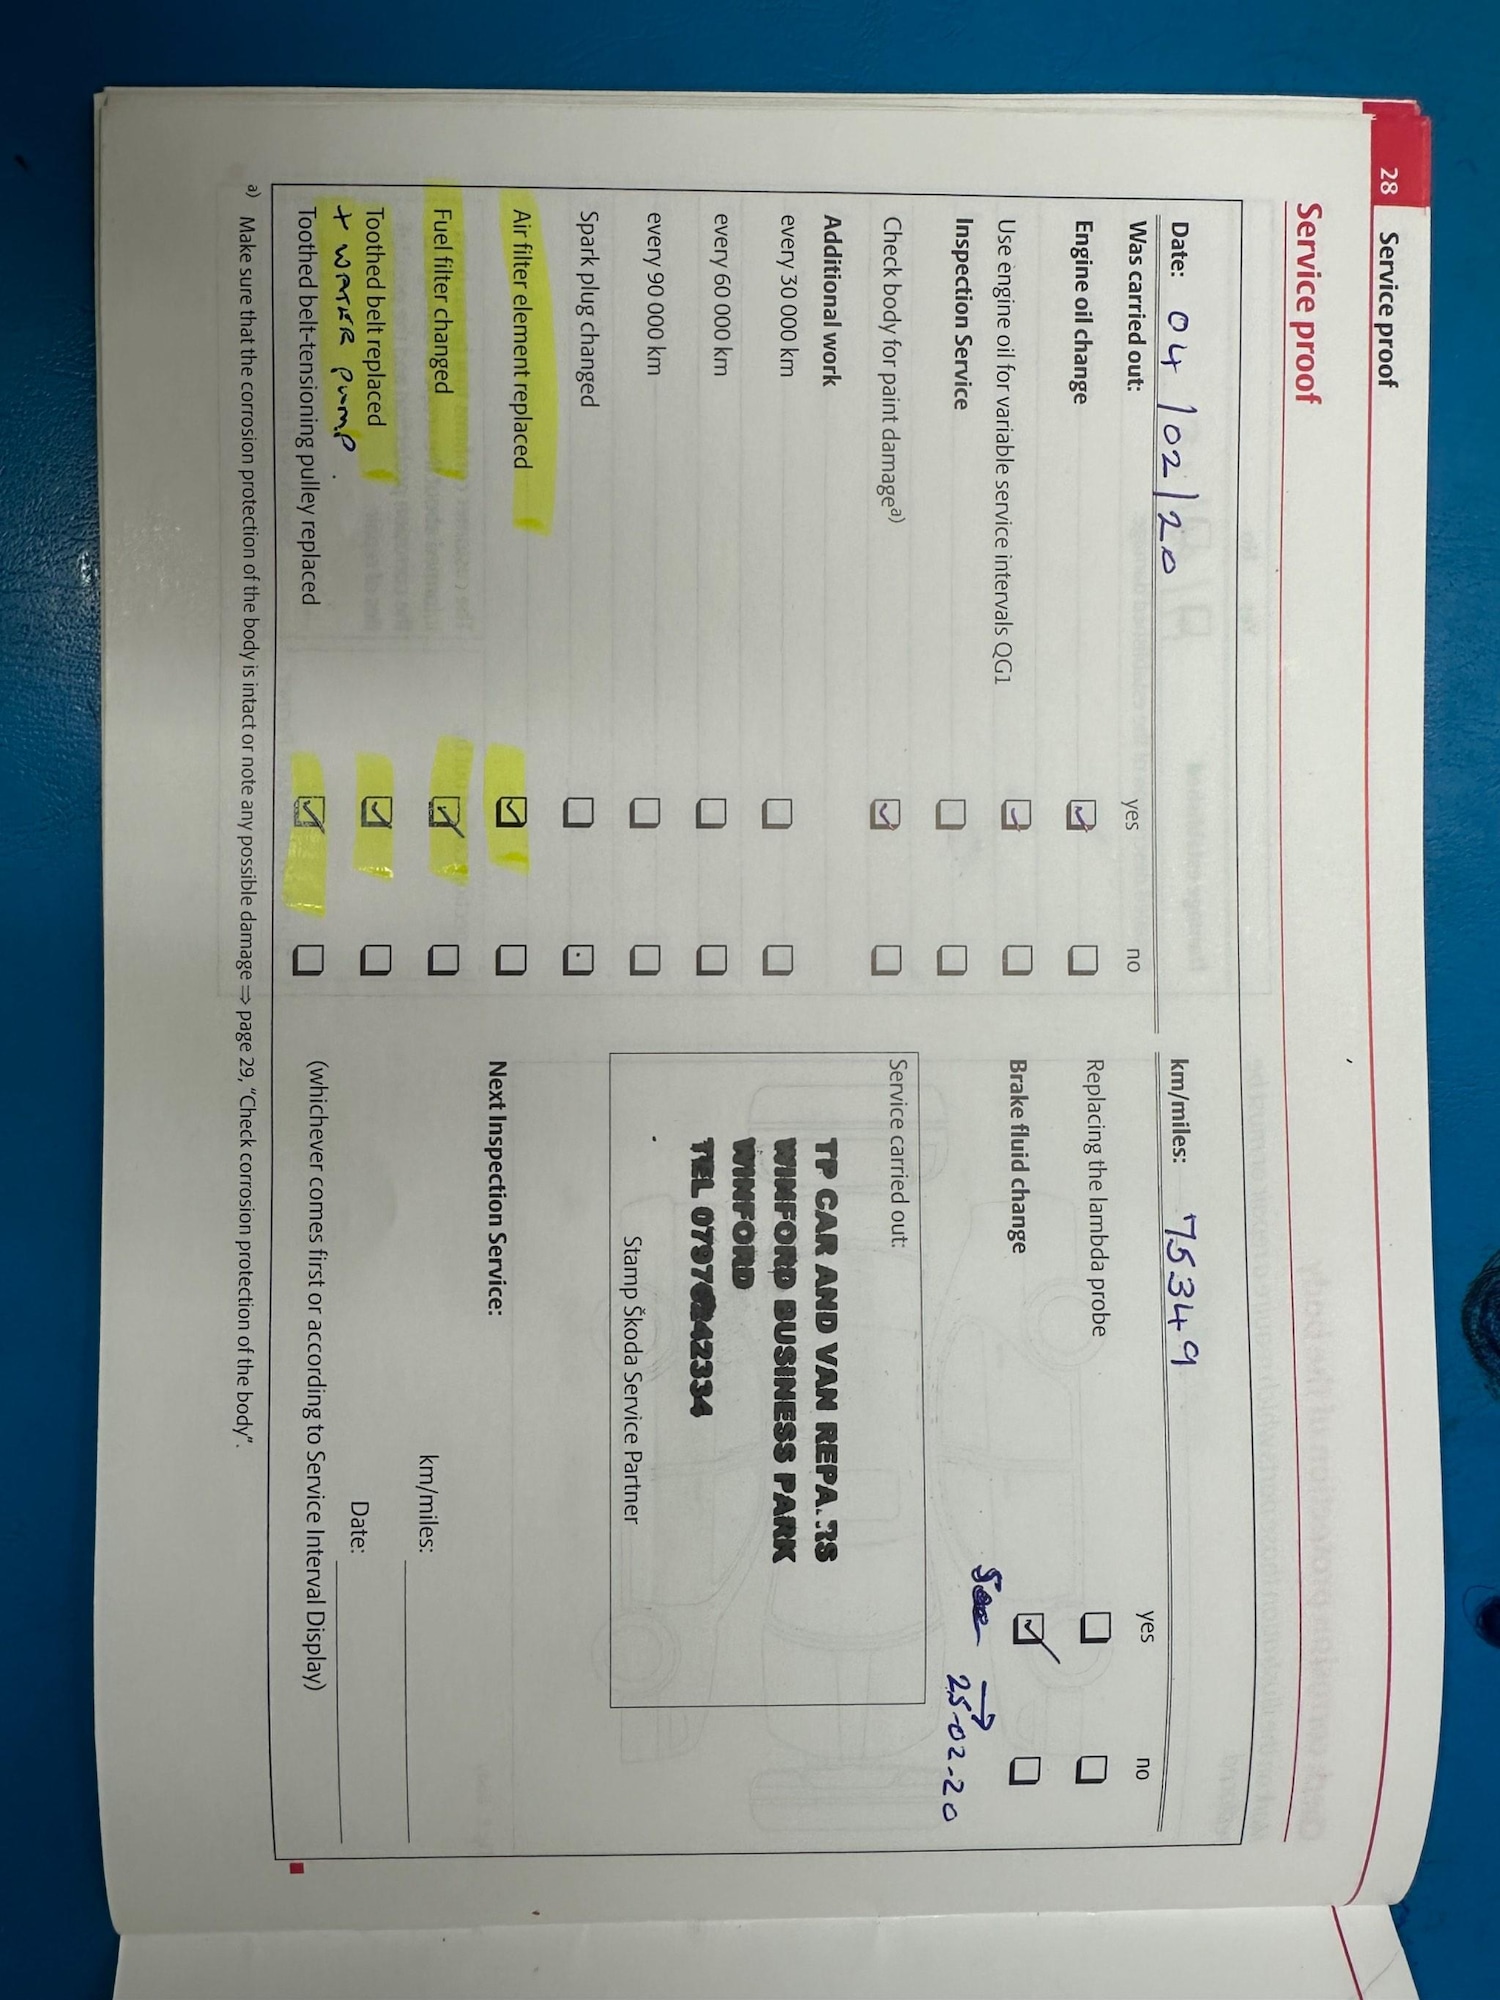 28 Service proof
Service proof
Date: 04/02/20
km/miles: 75349
Was carried out: yes no
Engine oil change
Use engine oil for variable service intervals QG1
Inspection Service
Check body for paint damage a)
Additional work
every 30 000 km
every 60 000 km
every 90 000 km
Spark plug changed
Air filter element replaced
Fuel filter changed
Toothed belt replaced
+ WATER PUMP
Toothed belt-tensioning pulley replaced
yes no
Replacing the lambda probe
Brake fluid change
See → 25-02-20
Service carried out:
TP CAR AND VAN REPAIRS
WINFORD BUSINESS PARK
WINFORD
TEL
Stamp Škoda Service Partner
Next Inspection Service:
km/miles:
Date:
(whichever comes first or according to Service Interval Display)
a) Make sure that the corrosion protection of the body is intact or note any possible damage ⇒ page 29, "Check corrosion protection of the body".